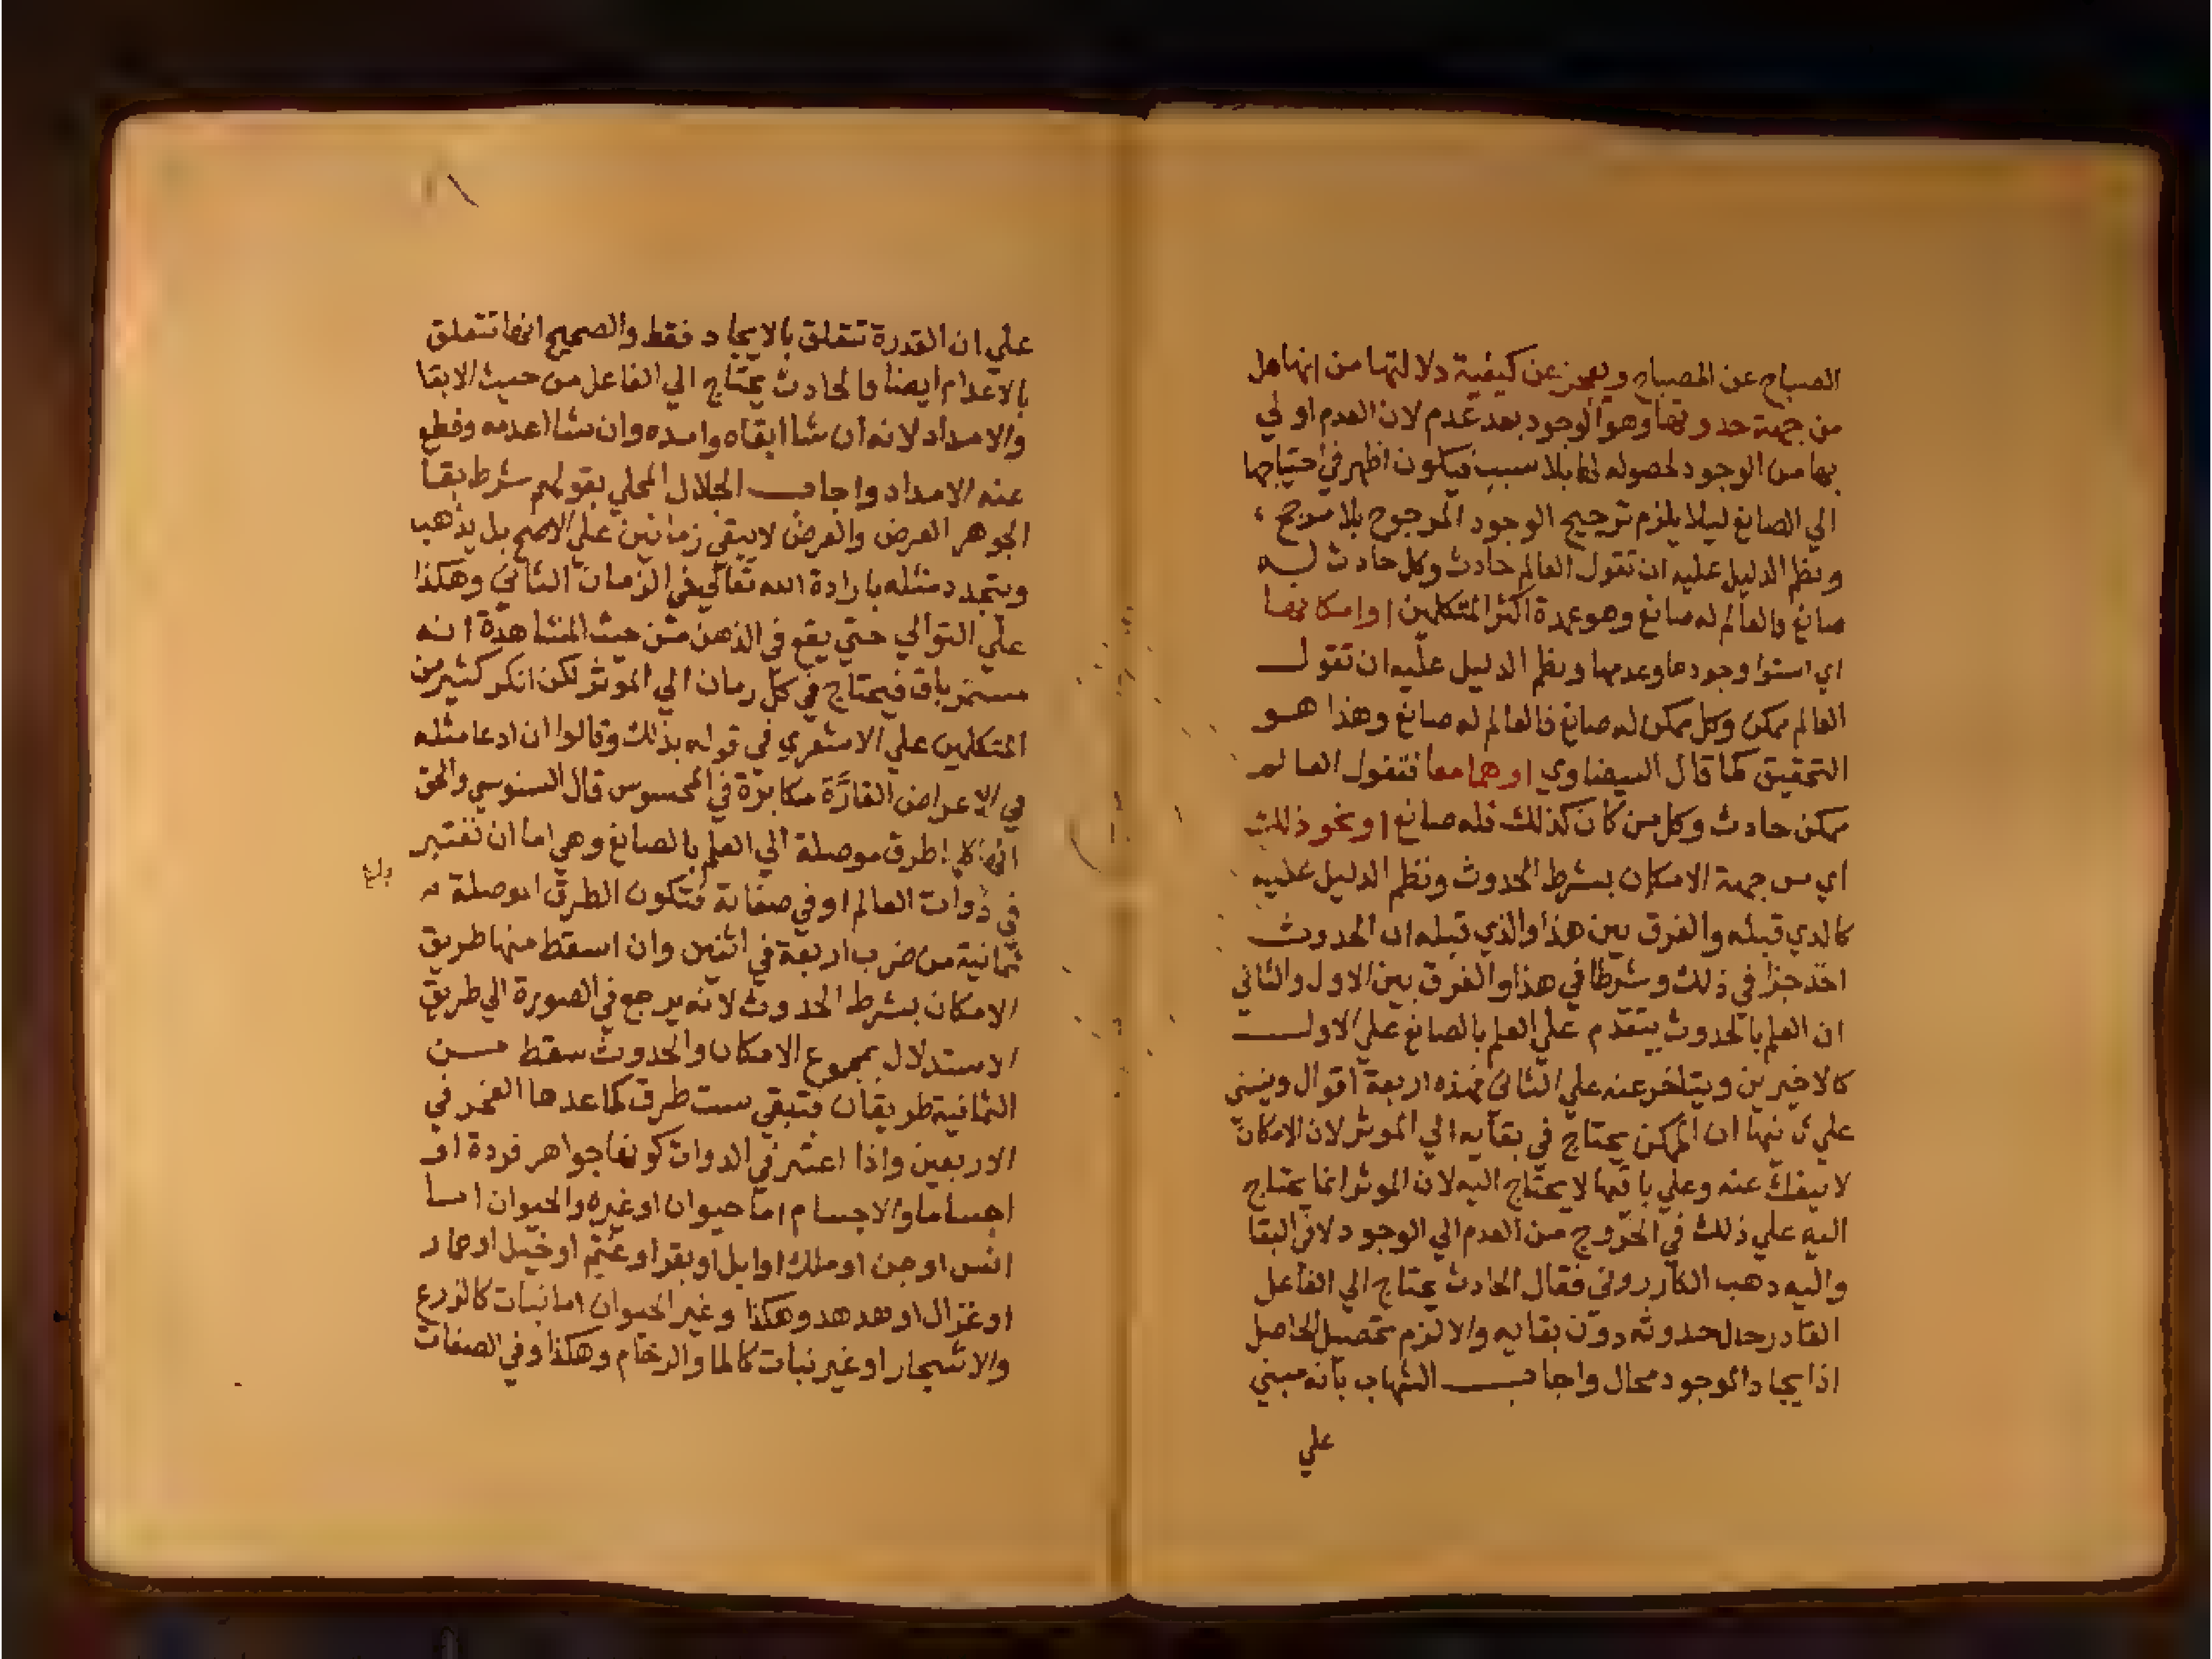 الصباح عن المصباح ويعجز عن كيفية دلالتها من انها هل
من جهة حدوثها وهو الوجود بعد عدم لان العدم اولي
بها من الوجود لحصوله لها بلا سبب فيكون اظهر في احتياجها
الي الصانع ليلا يلزم ترجيح الوجود المرجوح بلا مرجح ،
ونظم الدليل عليه ان تقول العالم حادث وكل حادث له
صانع فالعالم له صانع وهو عمدة اكثر المتكلمين او امكانها
اي استوا وجودها وعدمها ونظم الدليل عليه ان تقول
العالم ممكن وكل ممكن له صانع فالعالم له صانع وهذا هو
التحقيق كما قال البيضاوي او هما معا فتقول العالم
ممكن حادث وكل من كان كذلك فله صانع او نحو ذلك
اي من جهة الامكان بشرط الحدوث ونظم الدليل عليه
كالذي قبله والفرق بين هذا والذي قبله ان الحدوث
اخذ جزا في ذلك وشرطا في هذا والفرق بين الاول والثاني
ان العلم بالحدوث يتقدم علي العلم بالصانع علي الاول
كالاخيرين ويتاخر عنه علي الثاني فهذه اربعة اقوال وينبني
علي ثانيها ان الممكن يحتاج في بقايه الي الموثر لان الامكان
لا ينفك عنه وعلي باقيها لا يحتاج اليه لان الموثر انما يحتاج
اليه علي ذلك في الخروج من العدم الي الوجود لا في البقا
واليه ذهب الكازروني فقال الحادث يحتاج الي الفاعل
القادر حال حدوثه دون بقايه والا لزم تحصيل الحاصل
اذ ايجاد الموجود محال واجاب الشهاب بانه مبني
علي
علي ان القدرة تتعلق بالايجاد فقط والصحيح انها تتعلق
بالاعدام ايضا فالحادث يحتاج الي الفاعل من حيث الابقا
والامداد لانه ان شا ابقاه وامده وان شا اعدمه وقطع
عنه الامداد واجاب الجلال المحلي بقولهم شرط بقا
الجوهر العرض والعرض لا يبقي زمانين علي الاصح بل يذهب
ويتجدد مثله بارادة الله تعالي في الزمان الثاني وهكذا
علي التوالي حتي يقع في الذهن من حيث المشاهدة انه
مستمر باق فيحتاج في كل زمان الي الموثر لكن انكر كثير من
المتكلمين علي الاشعري في قوله بذلك وقالوا ان ادعا مثله
في الاعراض القارّة مكابرة في المحسوس قال السنوسي والحق
انها كلها طرق موصلة الي العلم بالصانع وهي اما ان تعتبر
بلغ
في ذوات العالم او في صفاته فتكون الطرق الموصلة
ثمانية من ضرب اربعة في اثنين وان اسقط منها طريق
الامكان بشرط الحدوث لانه يرجع في الصورة الي طريق
الاستدلال بمجموع الامكان والحدوث سقط من
الثمانية طريقان فتبقي ست طرق كما عدها الفخر في
الاربعين واذا اعتبر في الدوات كونها جواهر فردة او
اجساما والاجسام اما حيوان او غيره والحيوان اما
انس او جن او ملك او ابل او بقر او غنم او خيل او حمار
او غزال او هدهد وهكذا وغير الحيوان اما نبات كالزرع
والاشجار او غير نبات كالما والرخام وهكذا وفي الصفات